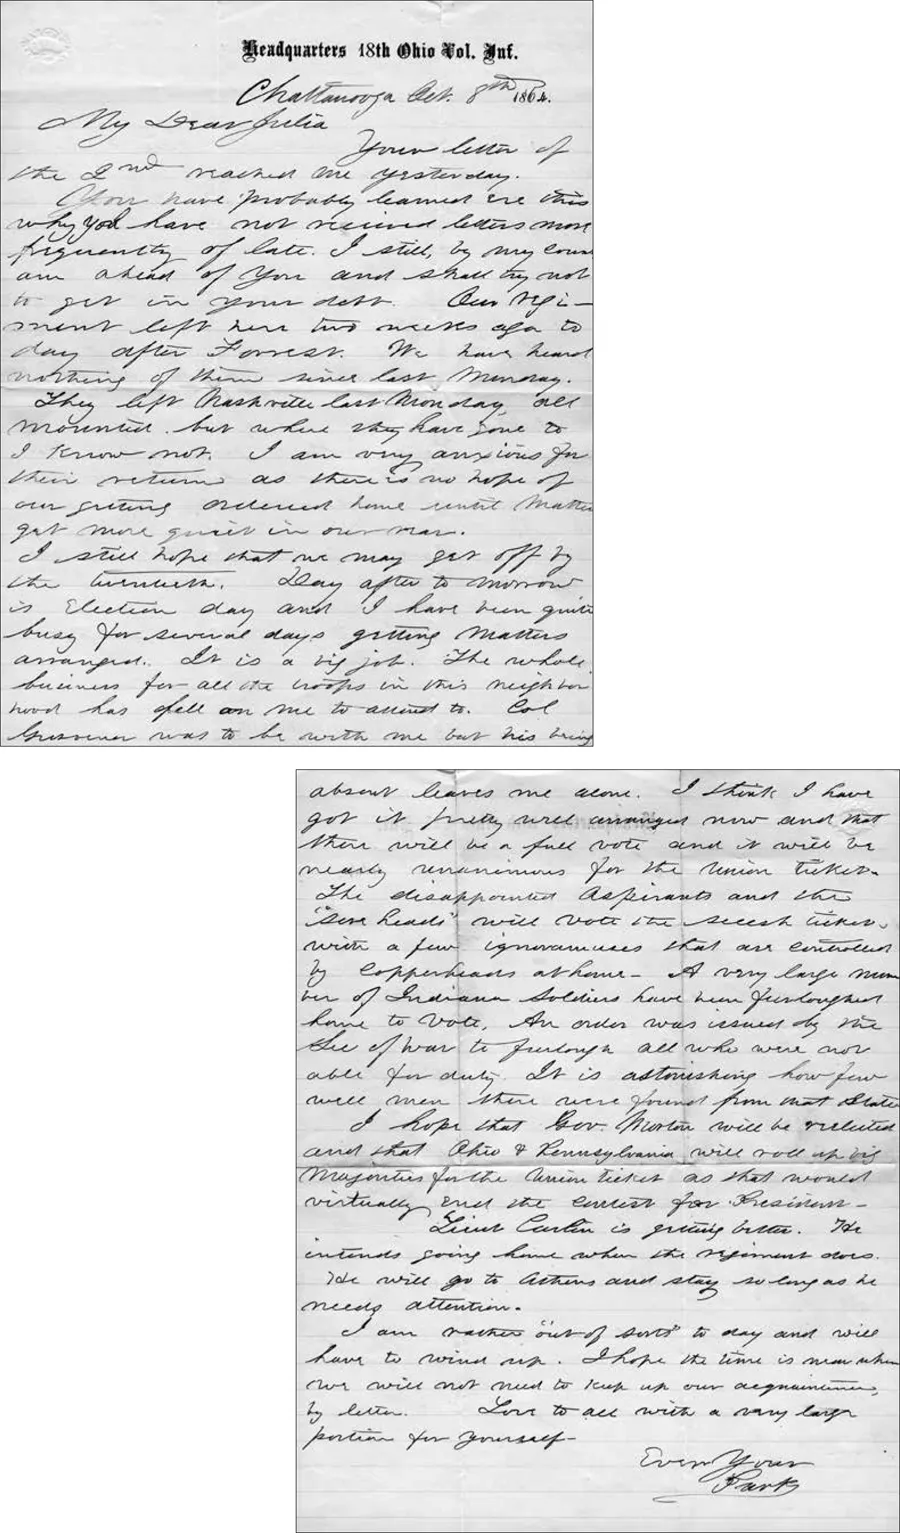 Headquarters 18th Ohio Vol. Inf.
Chattanooga Oct. 8th 1864.
My Dear Julia
Your letter of
the 2nd reached me yesterday.
You have probably learned ere this
why you have not received letters more
frequently of late. I still, by my count
am ahead of you and shall try not
to get in your debt. Our regi-
ment left here two weeks ago to
day after Forrest. We have heard
nothing of them since last Monday.
They left Nashville last Monday, all
mounted. but where they have gone to
I know not. I am very anxious for
their return as there is no hope of
our getting ordered home until Matters
get more quiet in our rear.
I still hope that we may get off by
the twentieth. Day after to morrow
is Election day and I have been quite
busy for several days getting Matters
arranged. It is a big job. The whole
business for all the troops in this neighbor
hood has fell on me to attend to. Col
Grosvenor was to be with me but his being
absent leaves me alone. I think I have
got it pretty well arranged now and that
there will be a full vote and it will be
nearly unanimous for the Union ticket.
The disappointed Aspirants and the
"Sore heads" will vote the secesh ticket,
with a few ignoramuses that are controlled
by Copperheads at home - A very large num
ber of Indiana Soldiers have been furloughed
home to vote. An order was issued by the
Sec of War to furlough all who were not
able for duty. It is astonishing how few
well men there were found from that State
I hope that Gov. Morton will be reelected
and that Ohio & Pennsylvania will roll up big
Majorities for the Union ticket as that would
virtually end the contest for President -
Lieut Carlin is getting better. He
intends going home when the regiment does.
He will go to Athens and stay so long as he
needs attention.
I am rather "out of sorts" to day and will
have to wind up. I hope the time is near when
we will not need to keep up our acquaintance,
by letter. Love to all with a very large
portion for yourself -
Ever Your